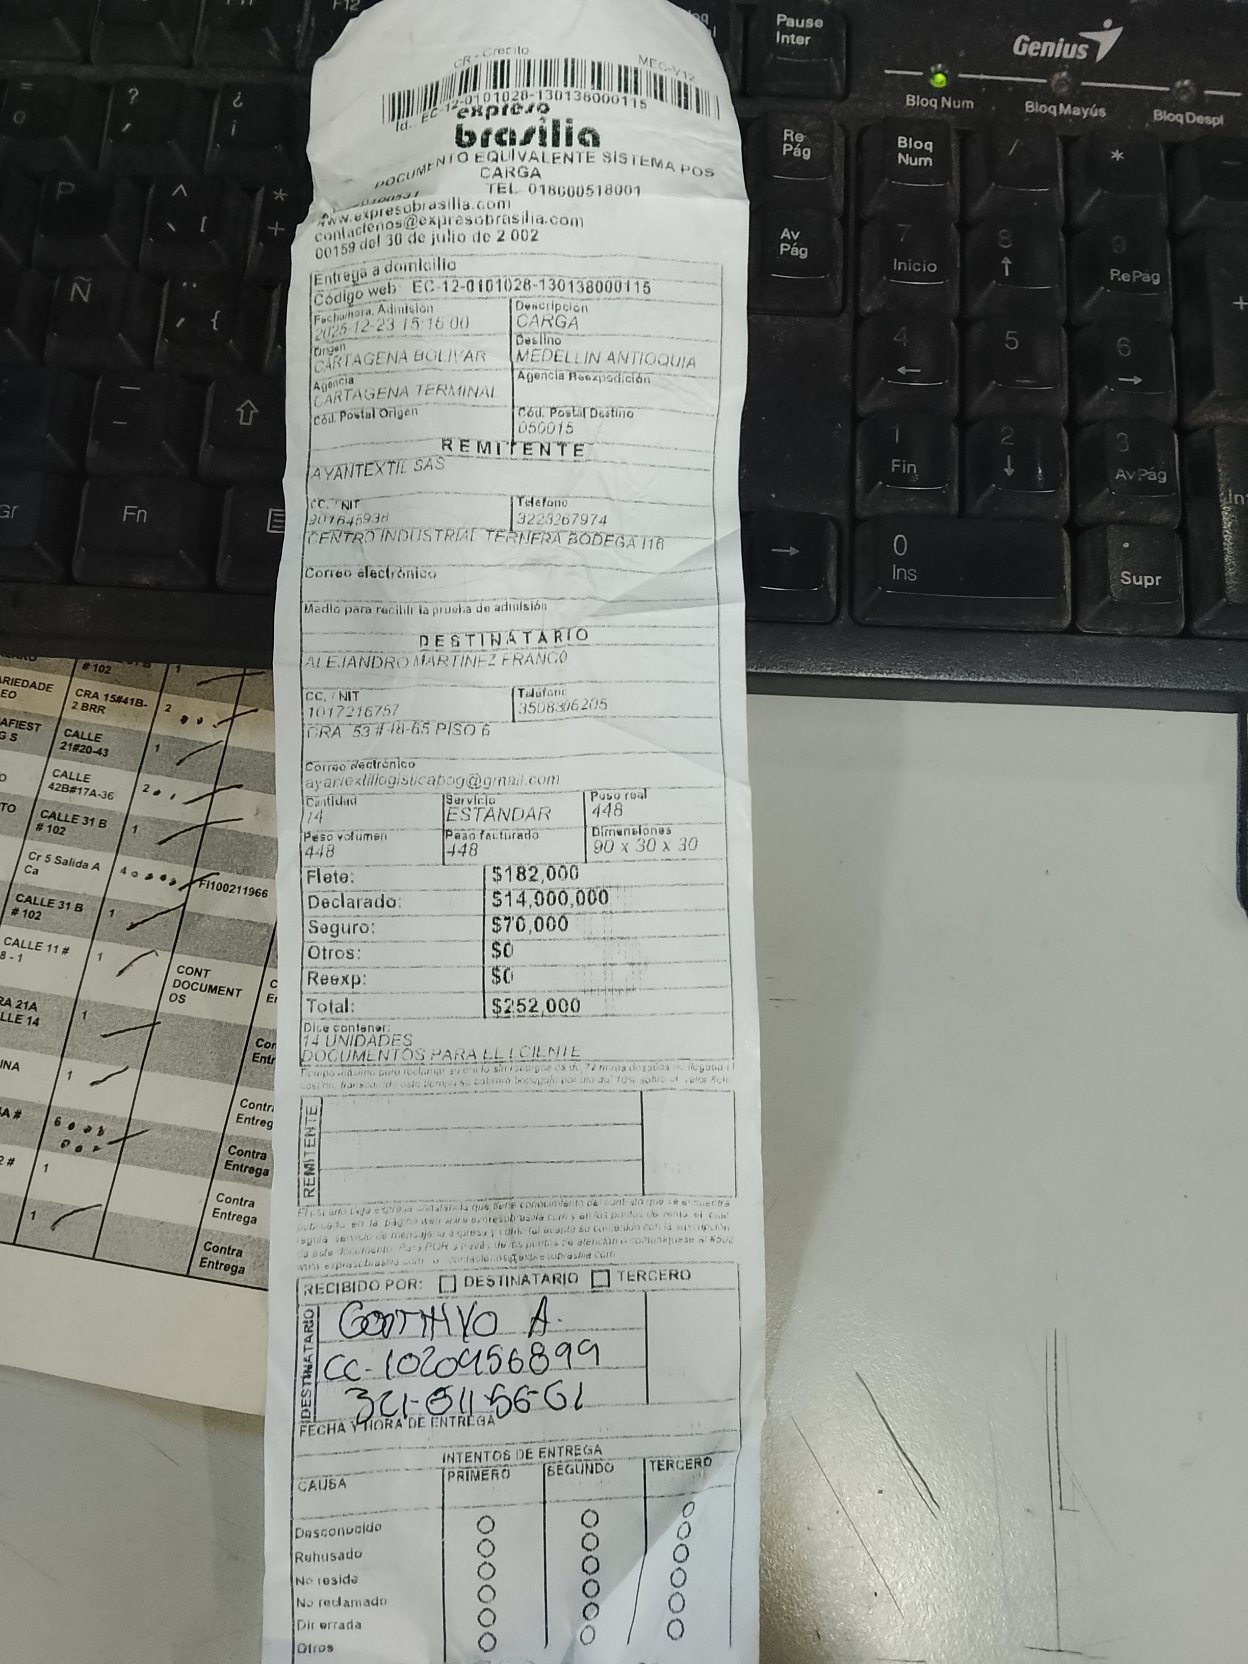 CR - Credito
MEC-V12
Id.: EC-12-0101028-130138000115
expreso
brasilia
DOCUMENTO EQUIVALENTE SISTEMA POS
CARGA
TEL. 018000518001
www.expresobrasilia.com
contactenos@expresobrasilia.com
00159 del 30 de julio de 2 002
Entrega a domicilio
Código web: EC-12-0101028-130138000115
Fecha/hora, Admision Descripción
2025-12-23 15:16:00 CARGA
Origen Destino
CARTAGENA BOLIVAR MEDELLIN ANTIOQUIA
Agencia Agencia Reexpedición
CARTAGENA TERMINAL
Cód. Postal Origen Cód. Postal Destino
050015
REMITENTE
AYANTEXTIL SAS
CC. / NIT Teléfono
901645938 3223267974
CENTRO INDUSTRIAL TERNERA BODEGA 116
Correo electrónico
Medio para recibir la prueba de admisión
DESTINATARIO
ALEJANDRO MARTINEZ FRANCO
CC. / NIT Teléfono
1017216757 3508306205
CRA 53 # 48-65 PISO 6
Correo electrónico
ayantextillogisticabog@gmail.com
Cantidad Servicio Peso real
14 ESTANDAR 448
Peso volumen Peso facturado Dimensiones
448 448 90 x 30 x 30
Flete: $182,000
Declarado: $14,000,000
Seguro: $70,000
Otros: $0
Reexp: $0
Total: $252,000
Dice contener:
14 UNIDADES
DOCUMENTOS PARA EL LCIENTE
REMITENTE
RECIBIDO POR: DESTINATARIO TERCERO
DESTINATARIO
GUSTAVO A.
CC-1020456899
321-511-56-61
FECHA Y HORA DE ENTREGA
INTENTOS DE ENTREGA
CAUSA PRIMERO SEGUNDO TERCERO
Desconocido
Rehusado
No reside
No reclamado
Dir errada
Otros
# 102 1
CRA 15#41B-
2 BRR 2
CALLE
21#20-43 1
CALLE
42B#17A-36 2
CALLE 31 B
# 102 1
Cr 5 Salida A
Ca 4 FI100211966
CALLE 31 B
# 102 1
CALLE 11 #
8 - 1 1
CONT
DOCUMENT
OS
1
1
6
1
1
Contra
Entrega
Contra
Entrega
Contra
Entrega
Genius
Bloq Num Bloq Mayús Bloq Despl
Pause
Inter
Re
Pág
Av
Pág
Bloq
Num
/
*
7
Inicio
8
9
RePág
4
5
6
+
1
Fin
2
3
AvPág
0
Ins
.
Supr
F12
?
¿
¡
P
^
[
*
+
Ñ
{
Fn